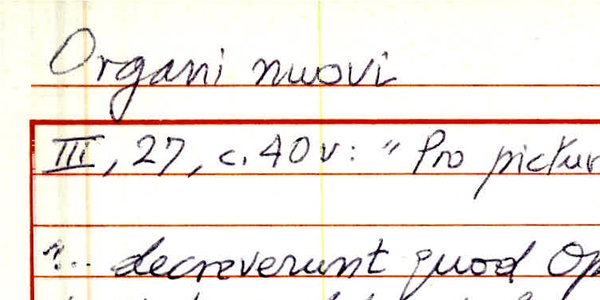 Organi nuovi
III, 27, c. 40 v: " Pro pictur
"... decreverunt quod Op